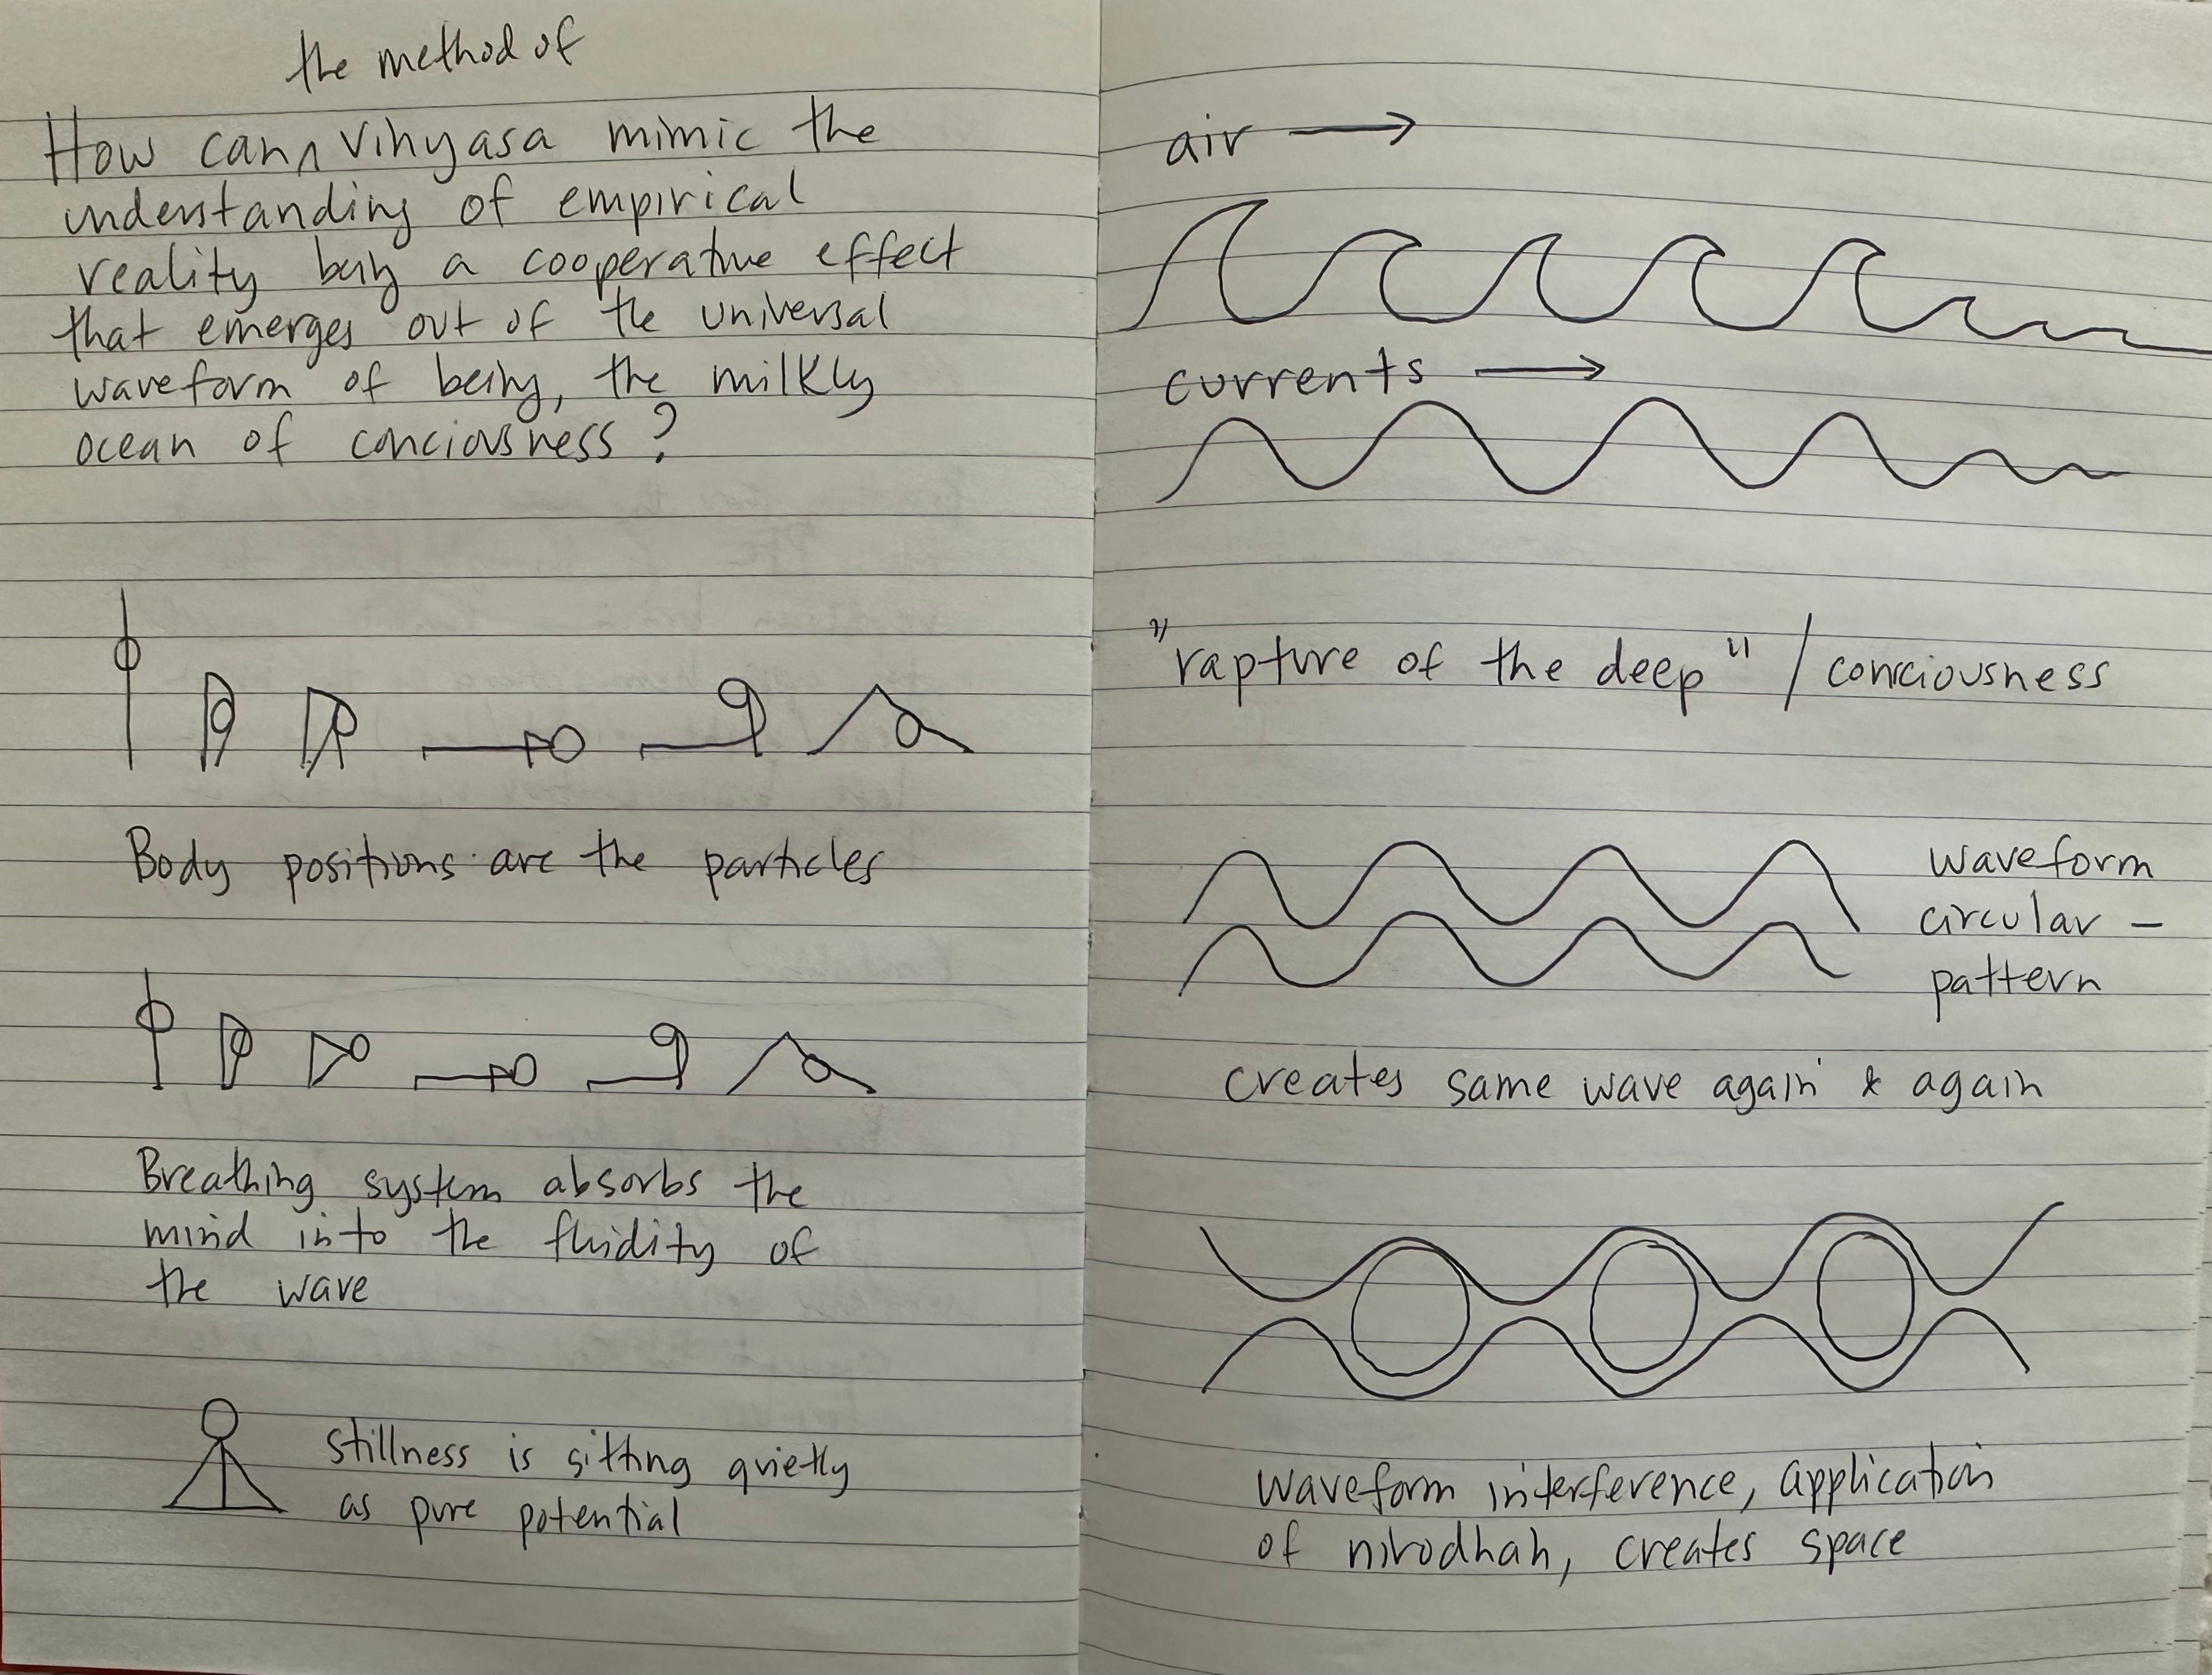 the method of
How can ʌ Vinyasa mimic the
understanding of empirical
reality being a cooperative effect
that emerges out of the universal
waveform of being, the milkly
ocean of conciousness?
Body positions are the particles
Breathing system absorbs the
mind into the fluidity of
the wave
stillness is sitting quietly
as pure potential
air →
currents →
"rapture of the deep" / conciousness
waveform
circular –
pattern
creates same wave again & again
waveform interference, application
of nirodhah, creates space